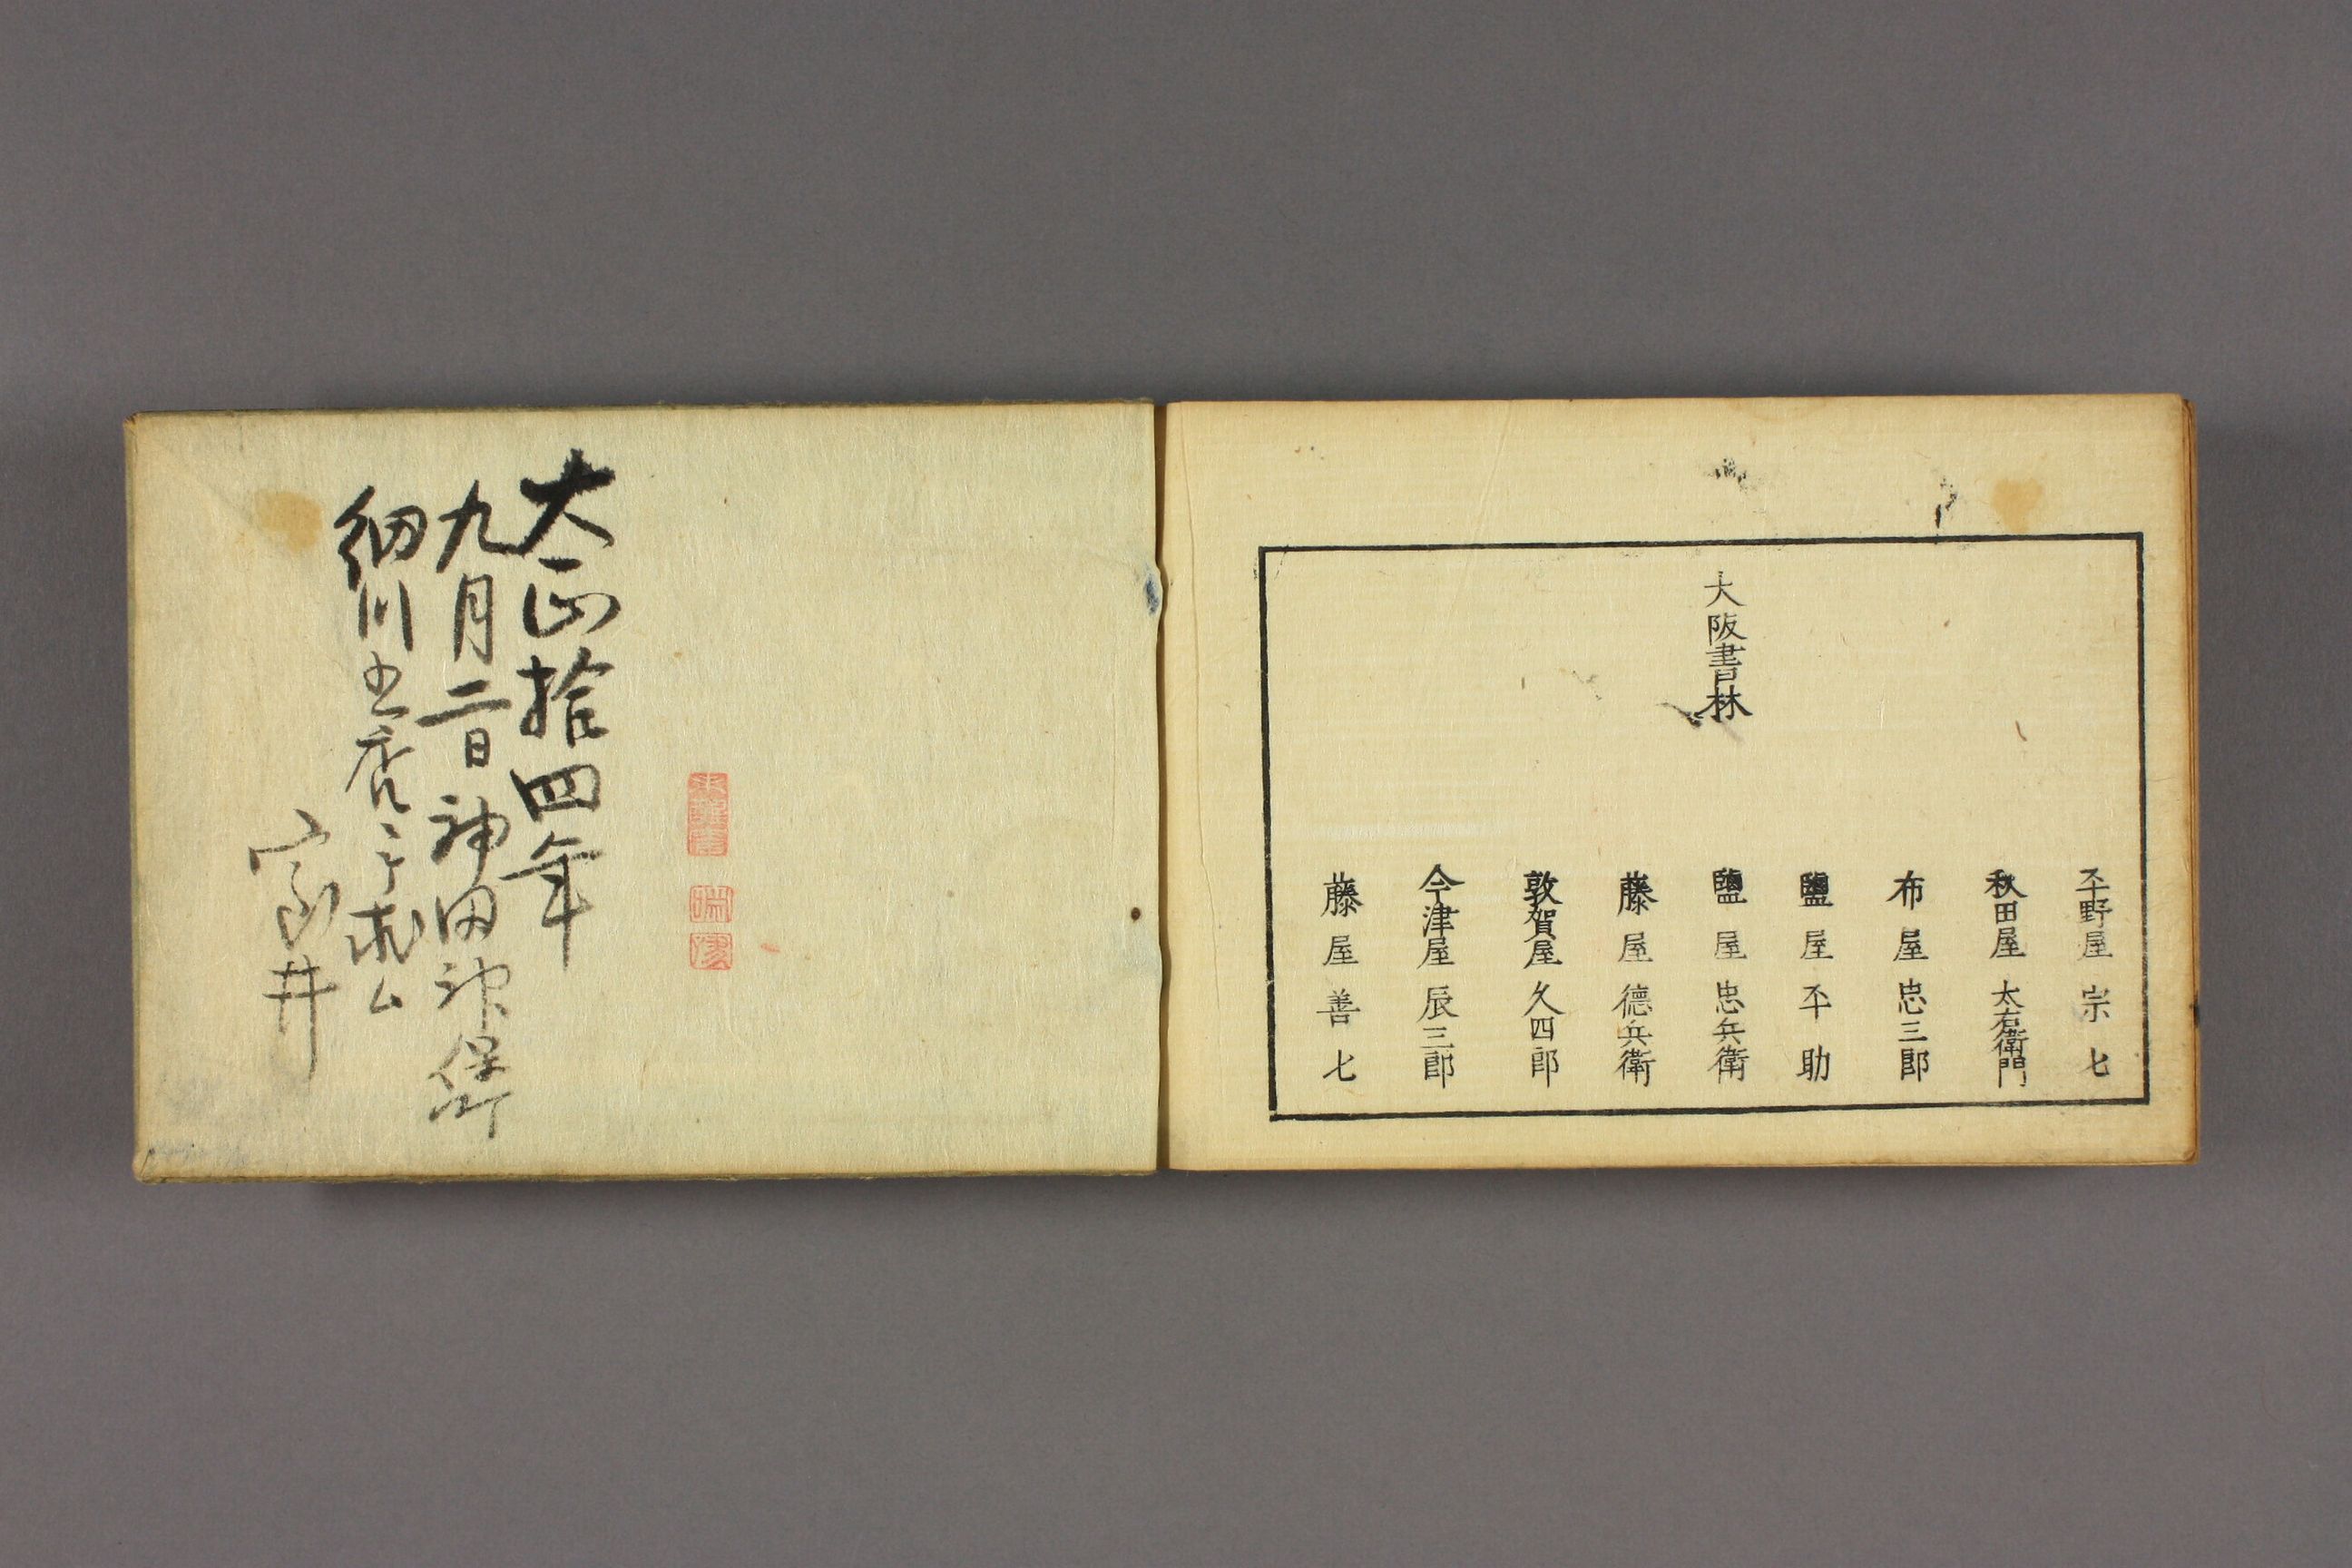 大阪書林
平野屋宗七
秋田屋太右衛門
布屋忠三郎
鹽屋平助
鹽屋忠兵衛
藤屋德兵衛
敦賀屋久四郎
今津屋辰三郎
藤屋善七
大正拾四年
九月二日神田神保町
細川書店ニテ求ム
家井